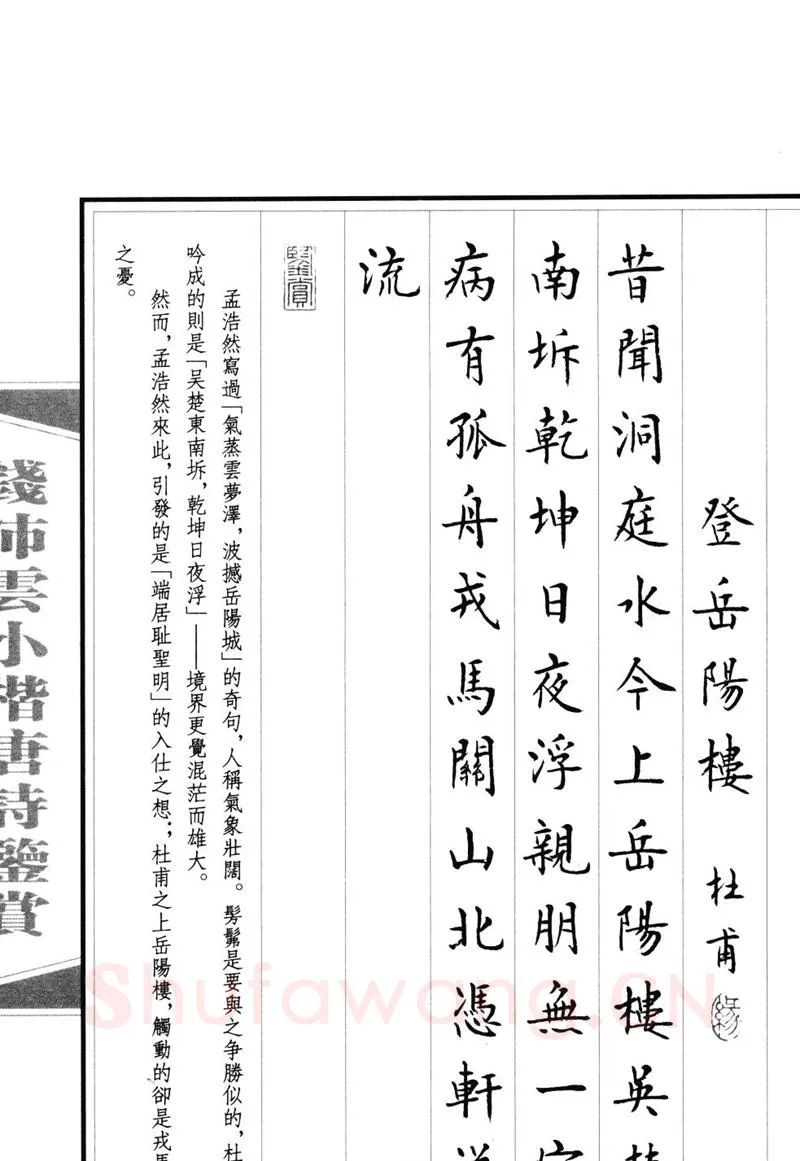 登岳陽樓 杜甫
昔聞洞庭水今上岳陽樓吳
南坼乾坤日夜浮親朋無一
病有孤舟戎馬關山北憑軒
流
鑒賞
孟浩然寫過「氣蒸雲夢澤，波撼岳陽城」的奇句，人稱氣象壯闊。髣髴是要與之争勝似的，杜
吟成的則是「吴楚東南坼，乾坤日夜浮」——境界更覺混茫而雄大。
然而，孟浩然來此，引發的是「端居耻聖明」的入仕之想；杜甫之上岳陽樓，觸動的卻是戎
之憂。
錢沛雲小楷唐詩鑒賞
Shufawang.CN